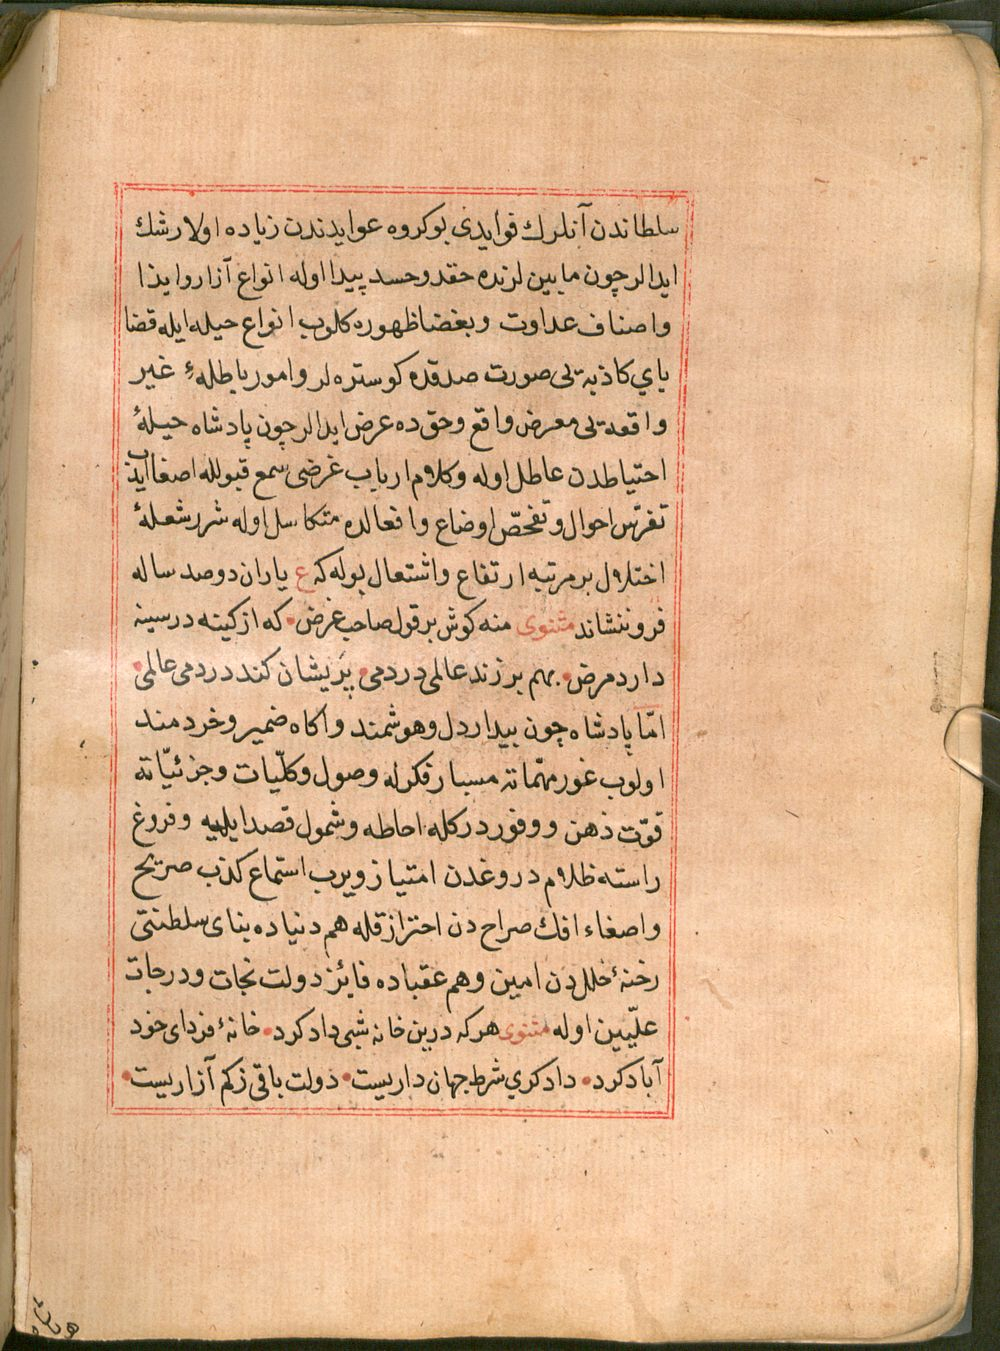 سلطاندن آنلرك فوایدی بو كروه عوایدندن زیاده اولا رشك
ایدالر چون مابین لرنده حقد و حسد پیدا اوله انواع آزار و ایذا
و اصناف عداوت و بغضا ظهوره كلوب انواع حیله ایله قضا
یای كاذبه یی صورت صدقده كوستره لر و امور باطلهٔ غیر
واقعه یی معرض واقع و حق ده عرض ایدالر چون پادشاه حیلهٔ
احتیاطدن عاطل اوله و كلام ارباب غرضی سمع قبولله اصغا ایدوب
تفرّس احوال و تفحّص اوضاع و افعالده متكاسل اوله شرر شعلهٔ
اختلال بر مرتبه ارتفاع و اشتعال بوله كه ع یاران دو صد ساله
فرو ننشاند مثنوی منه كوش بر قول صاحب غرض • كه از كینه در سینه
دارد مرض • بهم بر زند عالمی در دمی • پریشان كند در دمی عالمی •
امّا پادشاه چون بیدار دل و هوشمند و اكاه ضمیر و خردمند
اولوب غور مهمّاته مسبار فكرله وصول و كلّیات و جزئیّاته
قوّت ذهن و وفور دركله احاطه و شمول قصد ایلیه و فروغ
راسته ظلام دروغدن امتیاز ویرب استماع كذب صریح
و اصغاء افك صراح دن احتراز قله هم دنیاده بنای سلطنتی
رخنهٔ خلل دن امین و هم عقباده فایز دولت نجات و درجات
علّیین اوله مثنوی هر كه درین خانه شبی داد كرد • خانهٔ فردای خود
آباد كرد • دادكری شرط جهان داریست • دولت باقی زكم آزاریست •